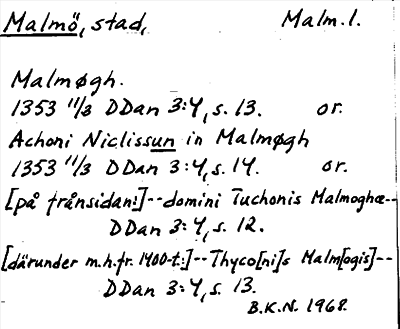 Malmö, stad, Malm. l.
Malmøgh.
1353 11/3 DDan 3:4, s. 13. or.
Achoni Niclissun in Malmøgh
1353 11/3 DDan 3:4, s. 14. or.
[på frånsidan:]--domini Tuchonis Malmoghæ--
DDan 3:4, s. 12.
[därunder m.h.fr. 1400-t.:]--Thyco[ni]s Malm[ogis]--
DDan 3:4, s. 13.
B.K.N. 1968.